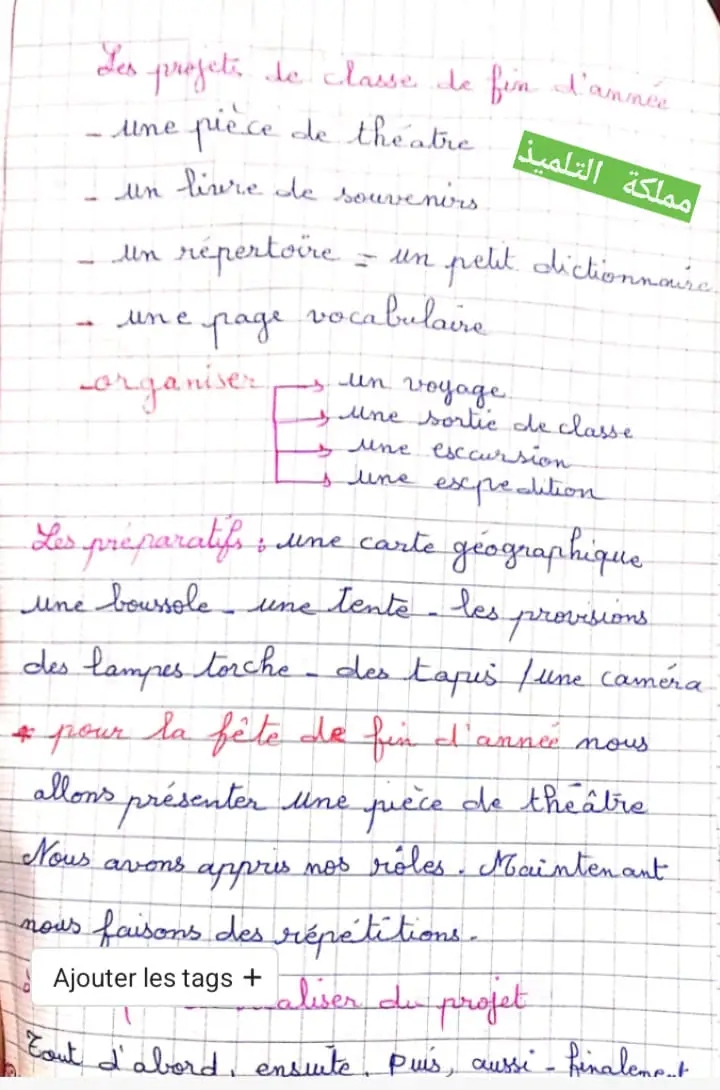 Les projets de classe de fin d'année
- une pièce de théatre
مملكة التلميذ
- un livre de souvenirs
- un répertoire = un petit dictionnaire
- une page vocabulaire
- organiser → un voyage
→ une sortie de classe
→ une escursion
→ une escpedition
Les préparatifs : une carte géographique
une boussole - une tente - les provisions
des lampes torche - des tapis / une caméra
* pour la fête de fin d'année nous
allons présenter une pièce de théâtre
Nous avons appris nos rôles. Maintenant
nous faisons des répétitions.
Ajouter les tags +
aliser du projet
Tout d'abord, ensuite, puis, aussi - finalement